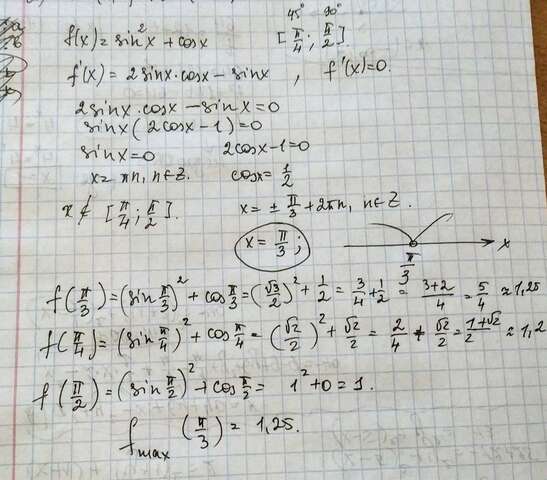 45° 90°
f(x) = sin²x + cosx [π/4; π/2].
f'(x) = 2sinx·cosx − sinx , f'(x)=0.
2sinx·cosx − sinx = 0
sinx(2cosx−1)=0
sinx=0 2cosx−1=0
x=πn, n∈Z. cosx=1/2
x∉[π/4; π/2]. x=±π/3+2πn, n∈Z.
x=π/3; x
π/3
f(π/3)=(sin π/3)²+cos π/3=(√3/2)²+1/2=3/4+1/2=(3+2)/4=5/4≈1,25
f(π/4)=(sin π/4)²+cos π/4=(√2/2)²+√2/2=2/4+√2/2=(1+√2)/2≈1,2
f(π/2)=(sin π/2)²+cos π/2=1²+0=1.
fmax(π/3)=1,25.